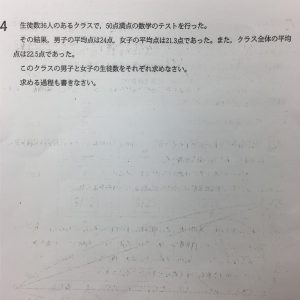 4 生徒数36人のあるクラスで，50点満点の数学のテストを行った。
その結果，男子の平均点は24点，女子の平均点は21.3点であった。また，クラス全体の平均
点は22.5点であった。
このクラスの男子と女子の生徒数をそれぞれ求めなさい。
求める過程も書きなさい。